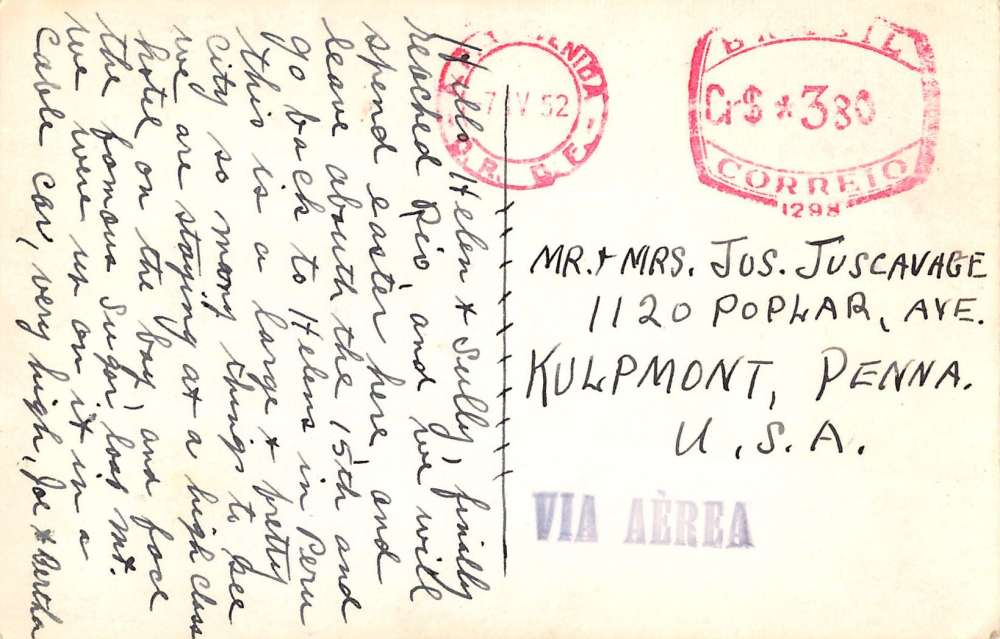 Hello Helen & Sully, finally
reached Rio, and we will
spend easter here, and
leave abouth the 15th and
go back to Helens in Peru
this is a large & pretty
city so many things to see
we are staying at a high class
hotel on the bay, and face
the famous Sugar loaf mt.
we were up on it in a
cable car, very high, Joe & Bertha
7 IV 52
D.R.
BRASIL
Cr$ *3 80
CORREIO
1298
MR. & MRS. JOS. JUSCAVAGE
1120 POPLAR, AVE.
KULPMONT, PENNA.
U.S.A.
VIA AÈREA